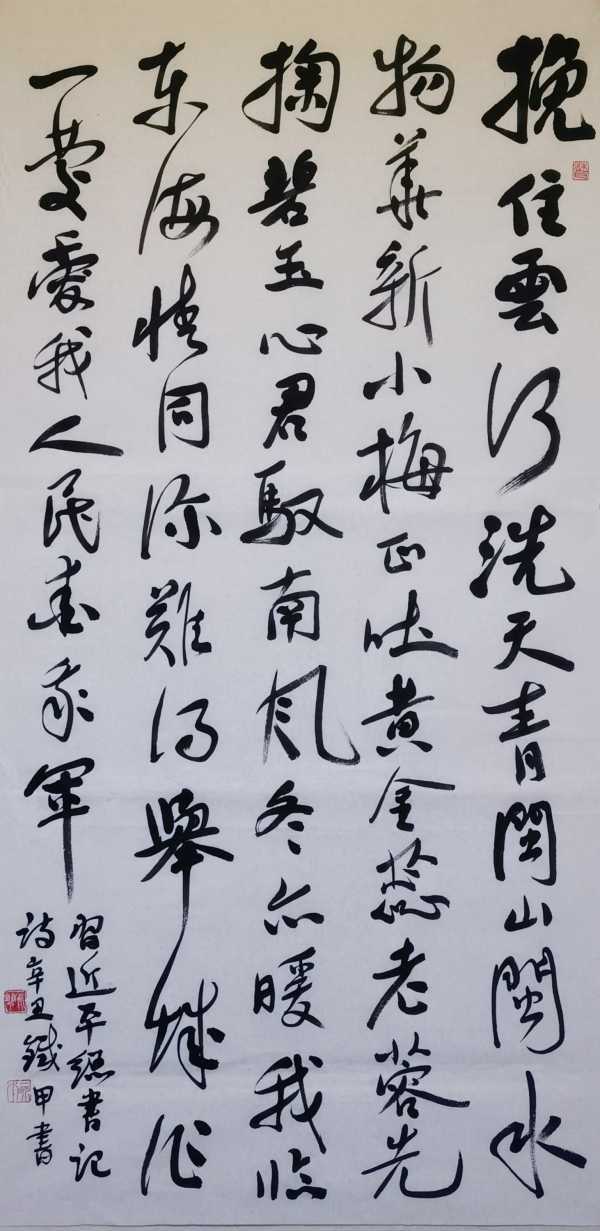 挽住雲河洗天青閩山閩水
物華新小梅正吐黄金蕊老蓉先
掬碧玉心君馭南風冬亦暖我临
东海情同深難得舉城作
一慶愛我人民爱我軍
習近平總書記
詩辛丑鐵甲書